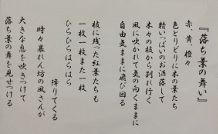 『落ち葉の舞い』
赤 黄 橙々
色とりどりに木の葉たち
精いっぱいのお洒落して
木々の枝から別れ行く
風に吹かれて気の向くままに
自由気ままに飛び回る
枝に残った紅葉たちも
一枚一枚また一枚
ひらひらはらはら
降りてくる
時々暴れん坊の風さんが
大きな息を吹きつけて
落ち葉の舞を見せつける